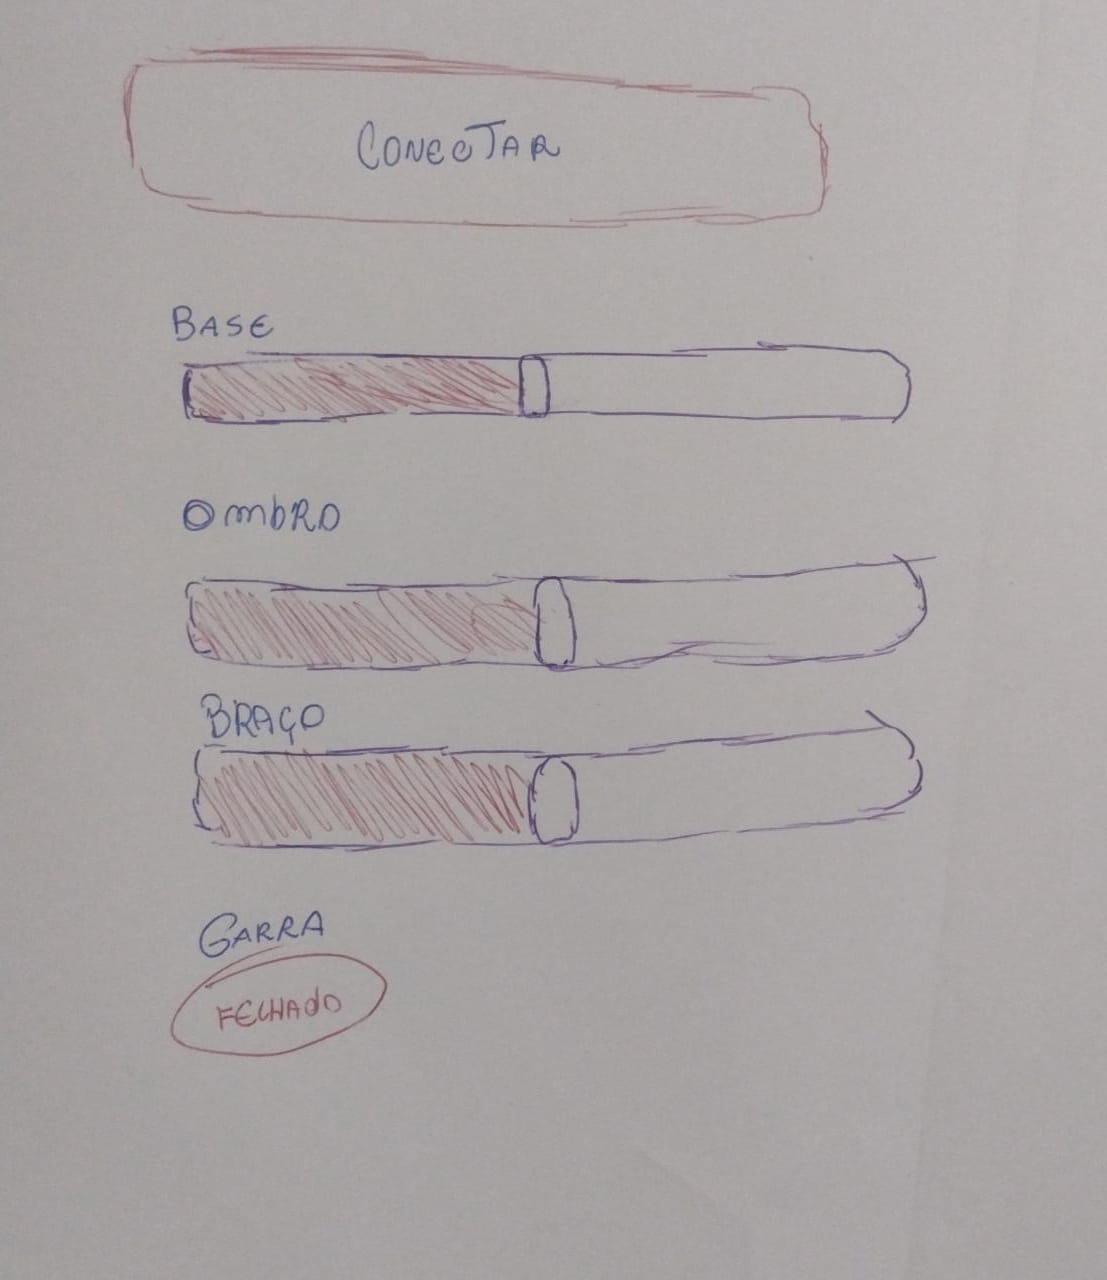 CONECTAR
BASE
OmbRO
BRAÇO
GARRA
FECHAdO